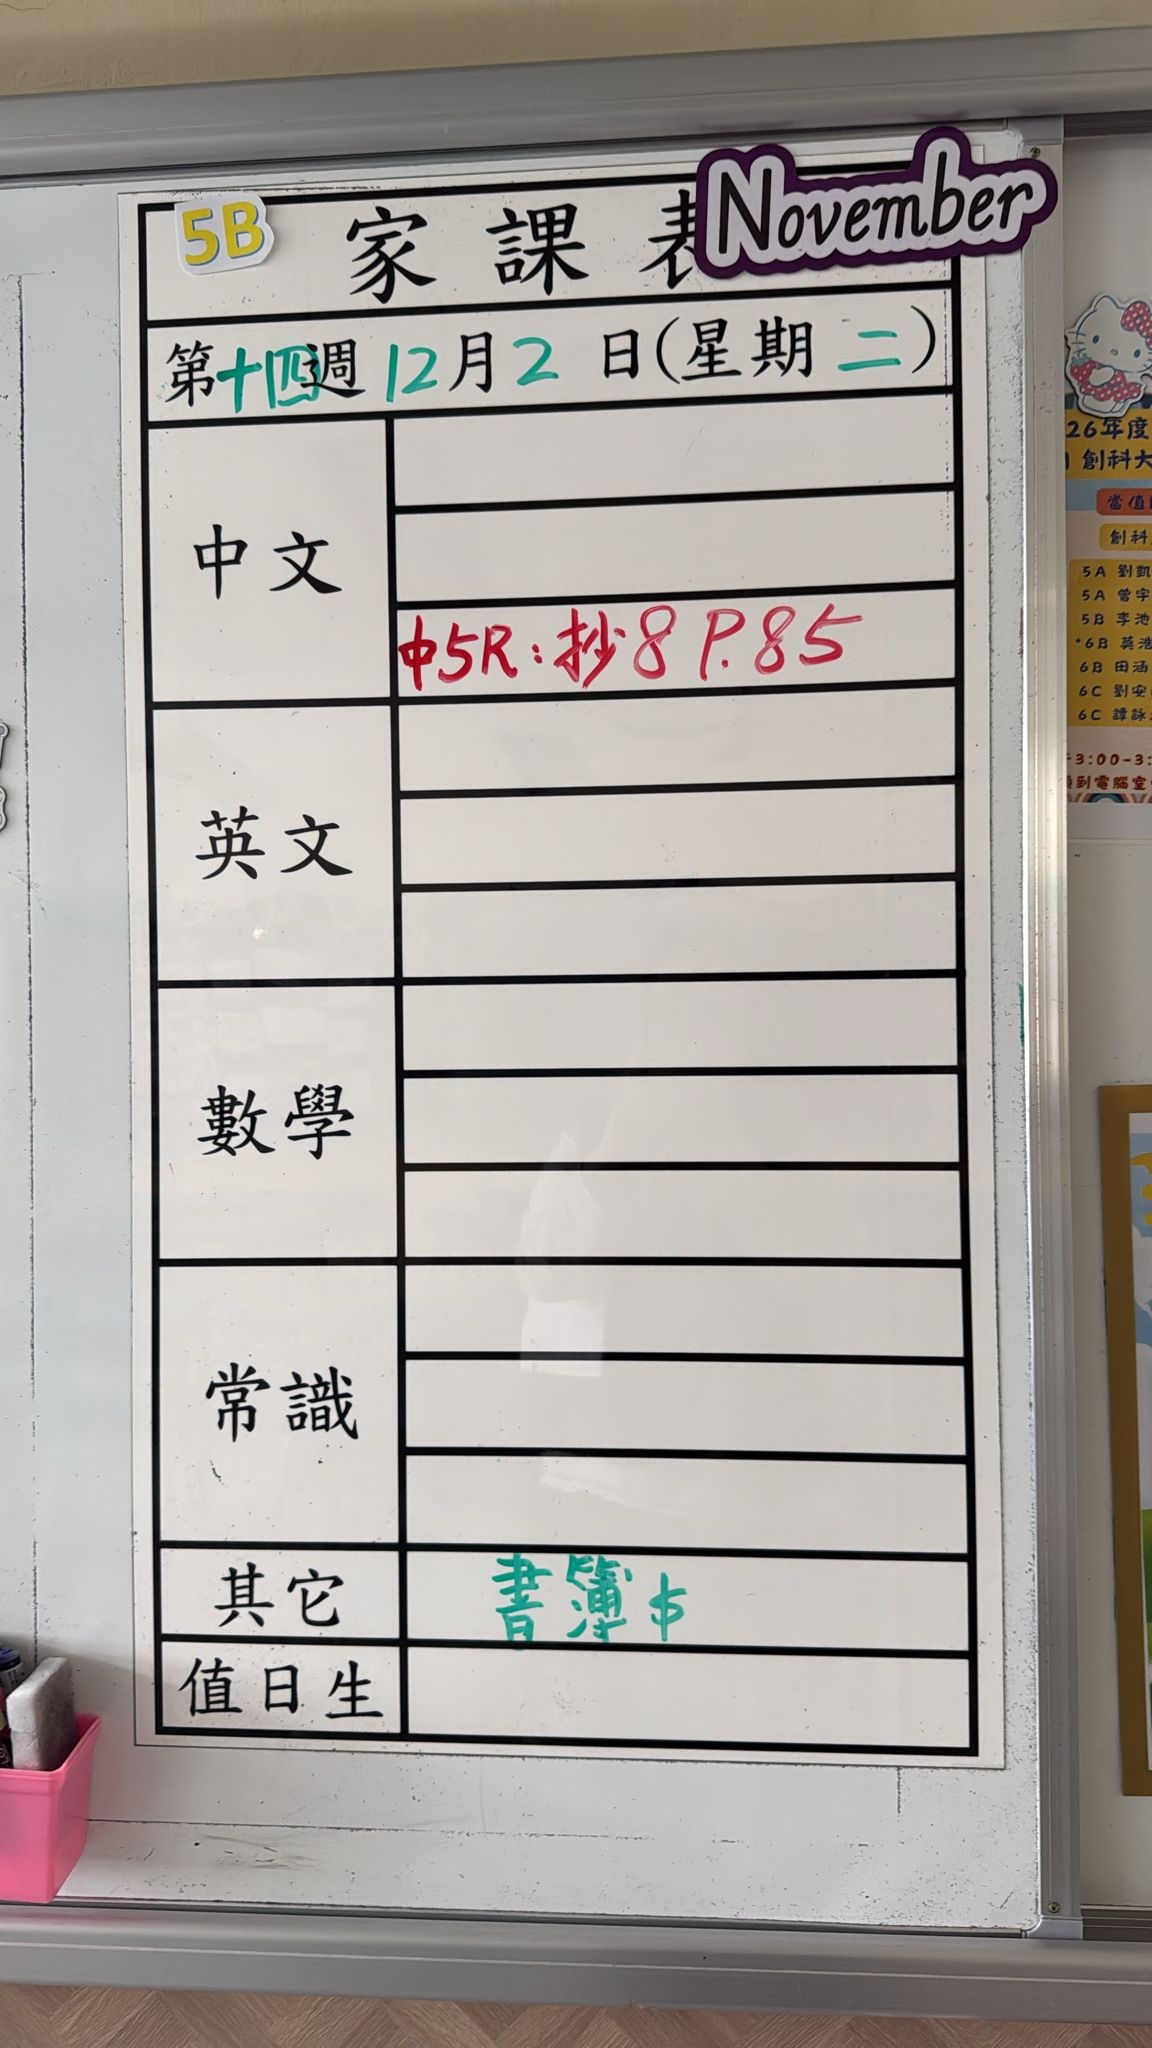 5B 家課表 November
第十四週 12月2日(星期二)
中文
中5R：抄8 P.85
英文
數學
常識
其它 書簿$
值日生
26年度
創科大
當值
創科
5A 劉凱
5A 曾宇
5B 李池
*6B 莫浩
6B 田涵
6C 劉安
6C 譚詠
3:00-3:
到電腦室